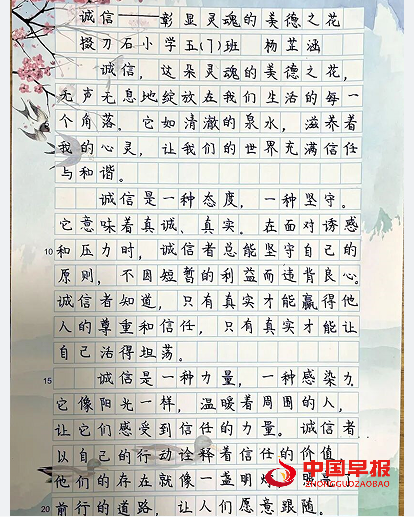 诚信——彰显灵魂的美德之花
掇刀石小学五(1)班 杨芷涵
诚信，这朵灵魂的美德之花，
无声无息地绽放在我们生活的每一
个角落。它如清澈的泉水，滋养着
我的心灵，让我们的世界充满信任
与和谐。
诚信是一种态度，一种坚守。
它意味着真诚、真实。在面对诱惑
10 和压力时，诚信者总能坚守自己的
原则，不因短暂的利益而违背良心。
诚信者知道，只有真实才能赢得他
人的尊重和信任，只有真实才能让
自己活得坦荡。
15 诚信是一种力量，一种感染力
它像阳光一样，温暖着周围的人，
让它们感受到信任的力量。诚信者
以自己的行动诠释着信任的价值
他们的存在就像一盏明
20 前行的道路，让人们愿意跟随。
中国早报
ZHONGGUOZAOBAO